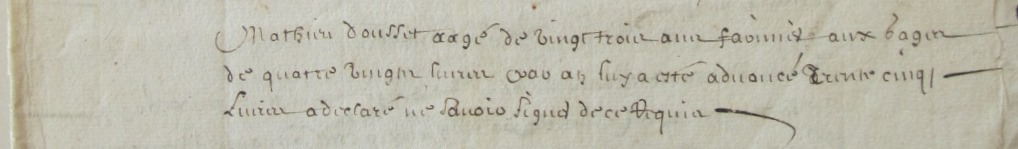 Mathieu dousset aagé de vingt trois ans saunier aux gages
de quatre vingts livres par an luy a esté advancé Trente cinq
livres a declaré ne scavoir signer de ce Requis